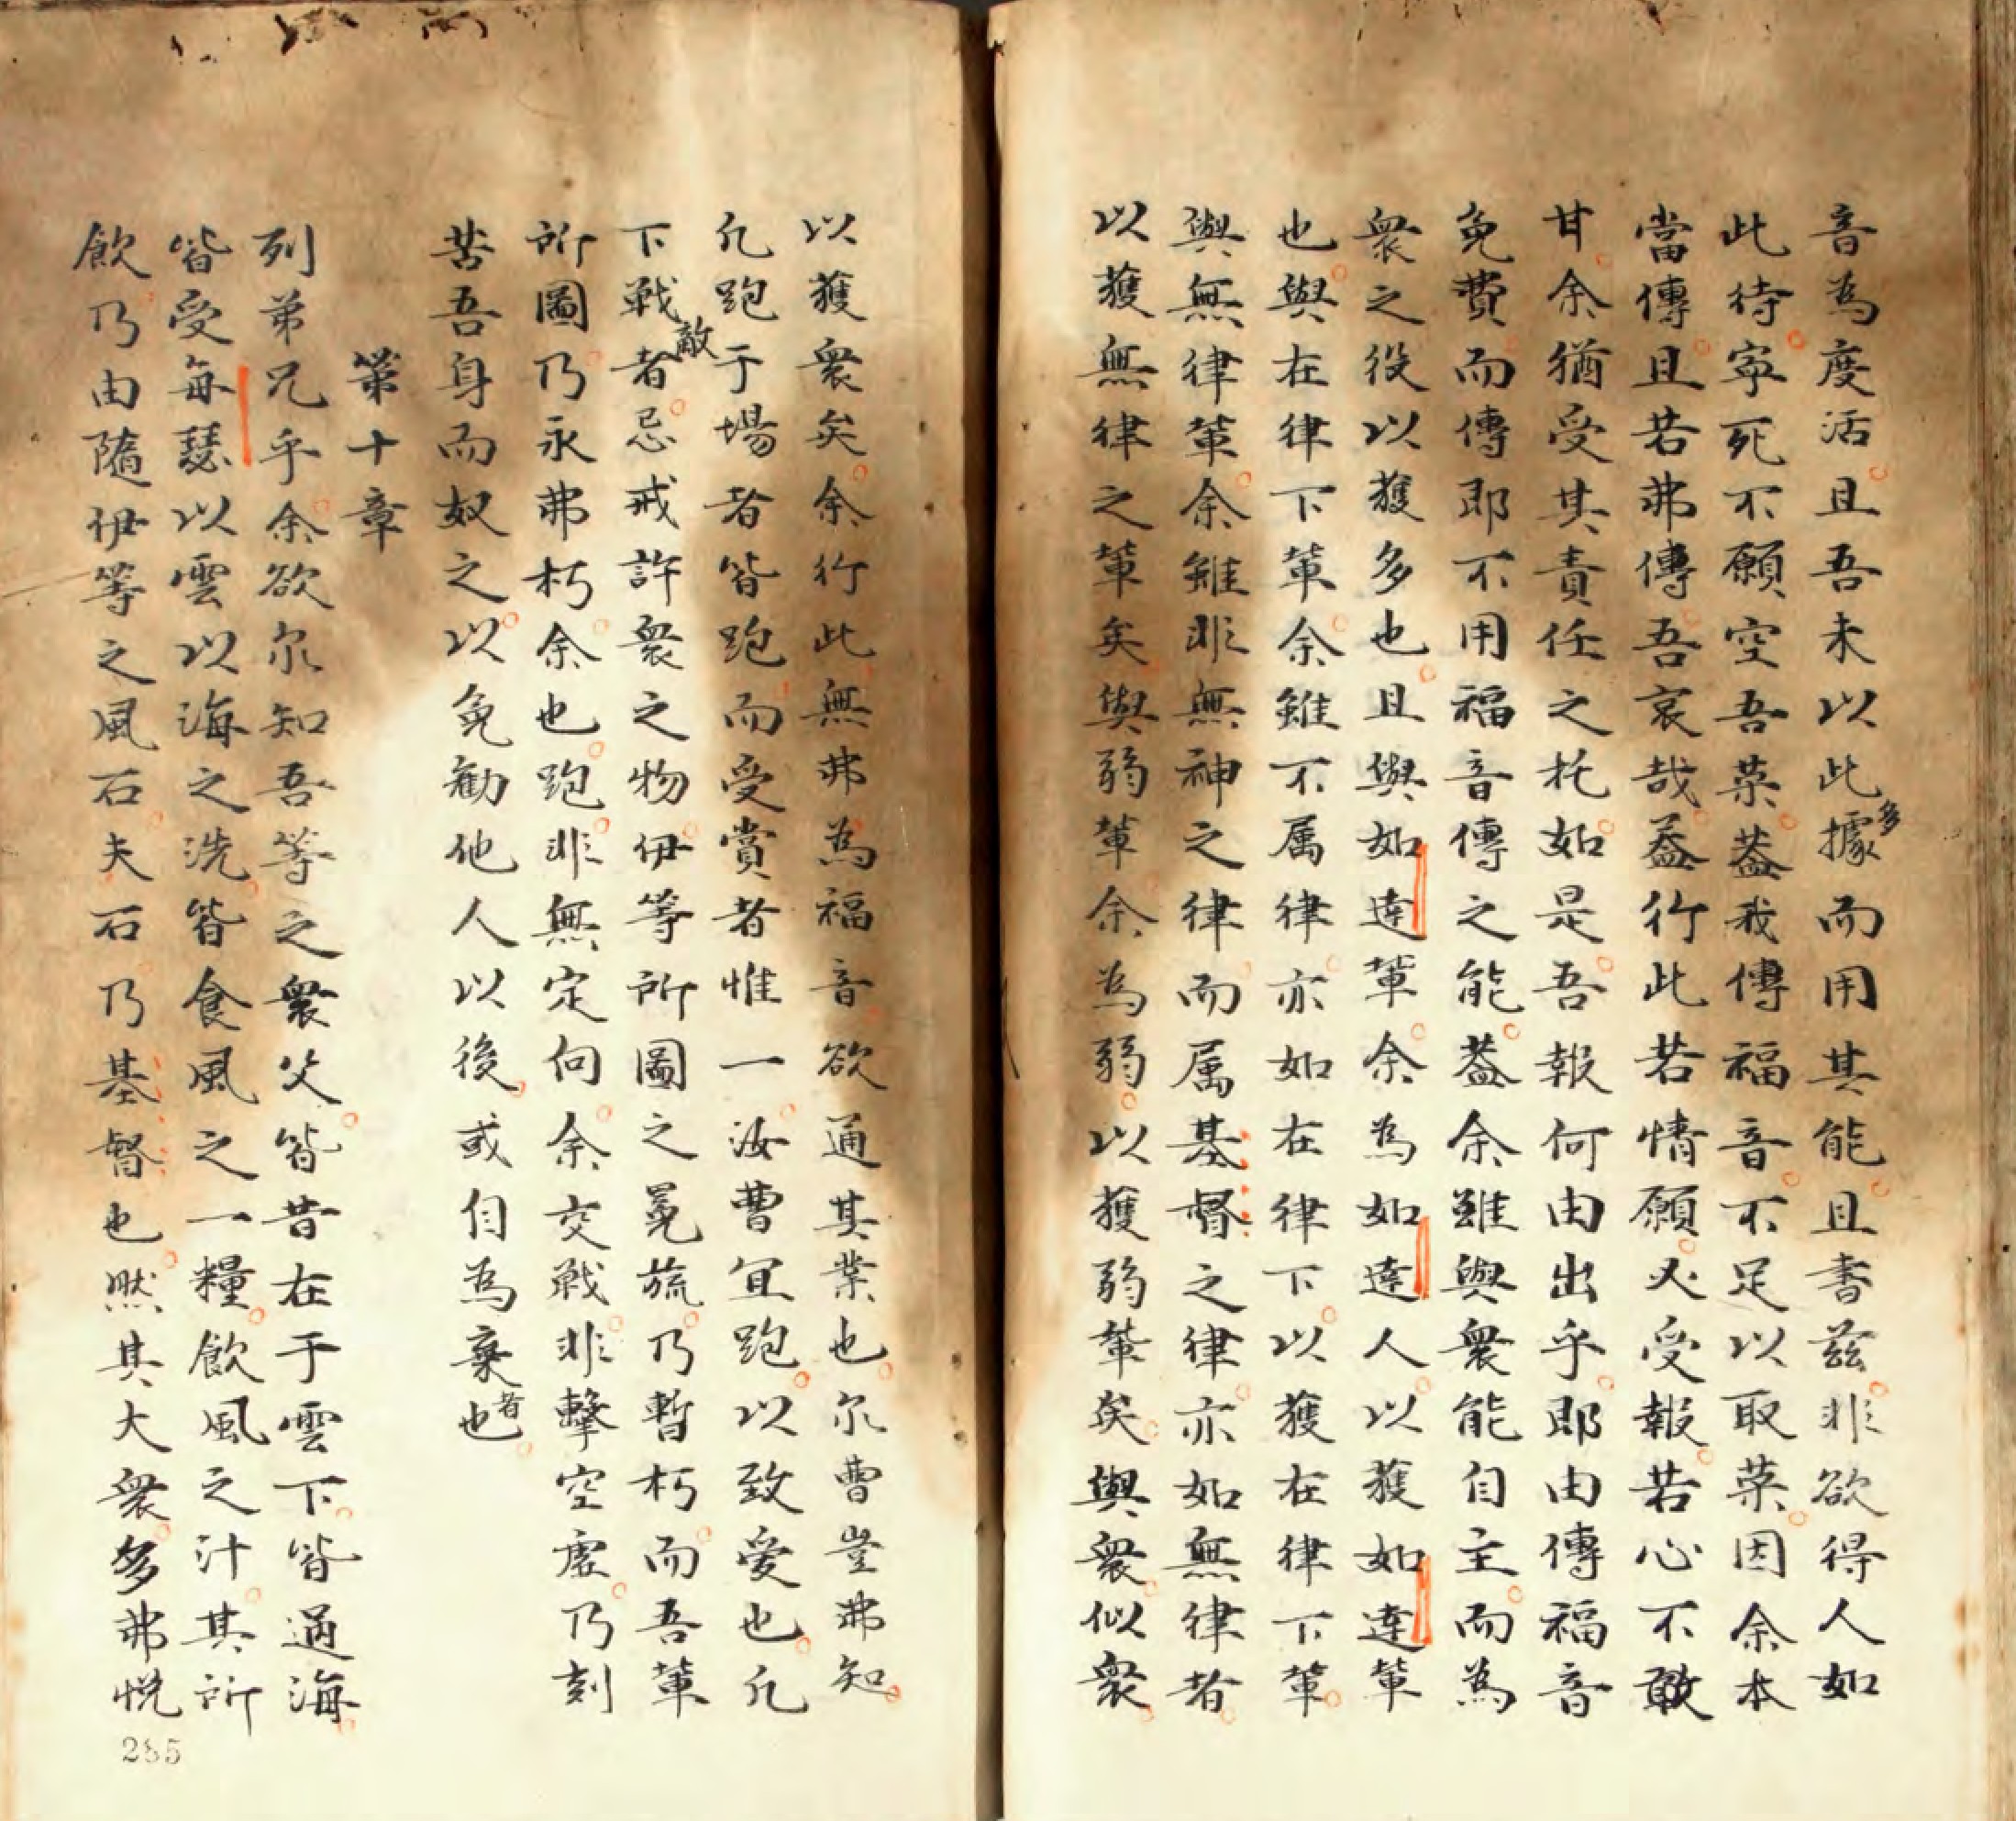 音為度活且吾未以此多據而用其能且書茲非欲得人如
此待寧死不願空吾榮蓋我傳福音不足以取榮因余本
當傳且若弗傳吾哀哉蓋行此若情願必受報若心不敢
甘余猶受其責任之托如是吾報何由出乎即由傳福音
免費而傳即不用福音傳之能蓋余雖與衆能自主而為
衆之役以獲多也且與如達軰余為如達人以獲如達軰
也與在律下軰余雖不属律亦如在律下以獲在律下軰
與無律軰余雖非無神之律而属基督之律亦如無律者
以獲無律之軰矣與弱軰余為弱以獲弱軰矣與衆似衆
以獲衆矣余行此無弗為福音欲通其業也尔曹豈弗知
凢跑于場者皆跑而受賞者惟一汝曹宜跑以致受也凢
下戰敵者忌戒許衆之物伊等所圖之冕旒乃暫朽而吾軰
所圖乃永弗朽余也跑非無定向余交戰非擊空虛乃刻
苦吾身而奴之以免勸他人以後或自為棄者也
第十章
列弟兄乎余欲尔知吾等之衆父皆昔在于雲下皆過海
皆受每瑟以雲以海之洗皆食風之一糧飲風之汁其所
飲乃由隨伊等之風石夫石乃基督也然其大衆多弗悅
285